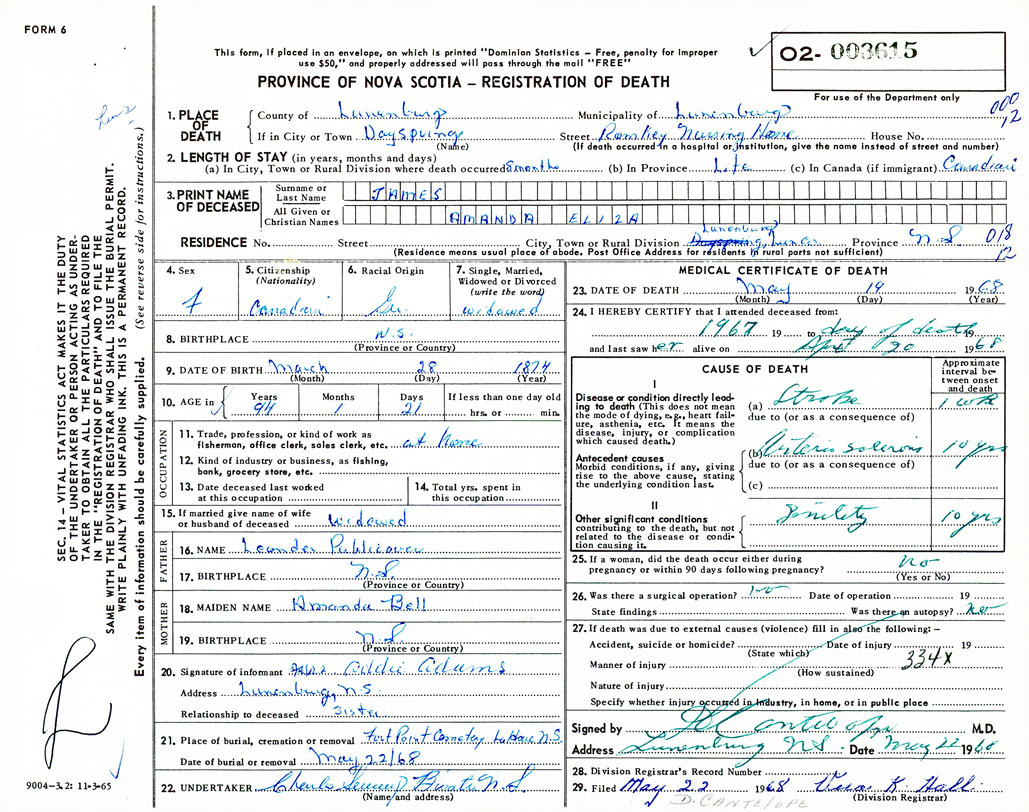 FORM 6
This form, if placed in an envelope, on which is printed "Dominion Statistics – Free, penalty for improper
use $50," and properly addressed will pass through the mail "FREE"
PROVINCE OF NOVA SCOTIA – REGISTRATION OF DEATH
O2- 003615
For use of the Department only
000
12
1. PLACE OF DEATH
County of Lunenburg Municipality of Lunenburg
If in City or Town Dayspring Street Rumkey Nursing Home House No.
(Name) (If death occurred in a hospital or institution, give the name instead of street and number)
2. LENGTH OF STAY (in years, months and days)
(a) In City, Town or Rural Division where death occurred 8 months (b) In Province Life (c) In Canada (if immigrant) Canadian
3. PRINT NAME OF DECEASED
Surname or Last Name JAMES
All Given or Christian Names AMANDA ELIZA
Lunenburg
RESIDENCE No. Street City, Town or Rural Division Dayspring, Lunen Province N.S 018
12
(Residence means usual place of abode. Post Office Address for residents in rural parts not sufficient)
4. Sex
F
5. Citizenship (Nationality)
Canadian
6. Racial Origin
Ger
7. Single, Married, Widowed or Divorced (write the word)
widowed
8. BIRTHPLACE N.S.
(Province or Country)
9. DATE OF BIRTH March 28 1874
(Month) (Day) (Year)
10. AGE in Years Months Days If less than one day old
94 1 21 hrs. or min.
OCCUPATION
11. Trade, profession, or kind of work as
fisherman, office clerk, sales clerk, etc. at Home
12. Kind of industry or business, as fishing,
bank, grocery store, etc.
13. Date deceased last worked
at this occupation
14. Total yrs. spent in
this occupation
15. If married give name of wife
or husband of deceased widowed
FATHER
16. NAME Leander Publicover
17. BIRTHPLACE N.S.
(Province or Country)
MOTHER
18. MAIDEN NAME Amanda Bell
19. BIRTHPLACE N.S
(Province or Country)
20. Signature of informant Addie Adams
Address Lunenburg, N.S.
Relationship to deceased Sister
21. Place of burial, cremation or removal Fort Point Cemetery LaHave N.S.
Date of burial or removal May 22/68
22. UNDERTAKER Charles N.S
(Name and address)
MEDICAL CERTIFICATE OF DEATH
23. DATE OF DEATH May 19 1968
(Month) (Day) (Year)
24. I HEREBY CERTIFY that I attended deceased from:
1967 19 to day of death 19
and last saw her alive on April 20 1968
CAUSE OF DEATH
Approximate interval between onset and death
I
Disease or condition directly leading to death (This does not mean the mode of dying, e.g., heart failure, asthenia, etc. It means the disease, injury, or complication which caused death.)
(a) Stroke 1 wk
due to (or as a consequence of)
Antecedent causes
Morbid conditions, if any, giving rise to the above cause, stating the underlying condition last.
(b) Arteriosclerosis 10 yrs
due to (or as a consequence of)
(c)
II
Other significant conditions contributing to the death, but not related to the disease or condition causing it.
Senility 10 yrs
25. If a woman, did the death occur either during
pregnancy or within 90 days following pregnancy? no
(Yes or No)
26. Was there a surgical operation? no Date of operation 19
State findings Was there an autopsy? no
27. If death was due to external causes (violence) fill in also the following: –
Accident, suicide or homicide? Date of injury 19
(State which)
Manner of injury 334X
(How sustained)
Nature of injury
Specify whether injury occurred in industry, in home, or in public place
Signed by D Cantelope M.D.
Address Lunenburg NS Date May 22 1968
28. Division Registrar's Record Number
29. Filed May 22 1968 K. Hall
(Division Registrar)
D. CANTELOPE
SEC. 14 – VITAL STATISTICS ACT MAKES IT THE DUTY
OF THE UNDERTAKER OR PERSON ACTING AS UNDER-
TAKER TO OBTAIN ALL THE PARTICULARS REQUIRED
IN THE "REGISTRATION OF DEATH" AND TO FILE THE
SAME WITH THE DIVISION REGISTRAR WHO SHALL ISSUE THE BURIAL PERMIT.
WRITE PLAINLY WITH UNFADING INK. THIS IS A PERMANENT RECORD.
Every item of information should be carefully supplied. (See reverse side for instructions.)
9004-3.2: 11-3-65